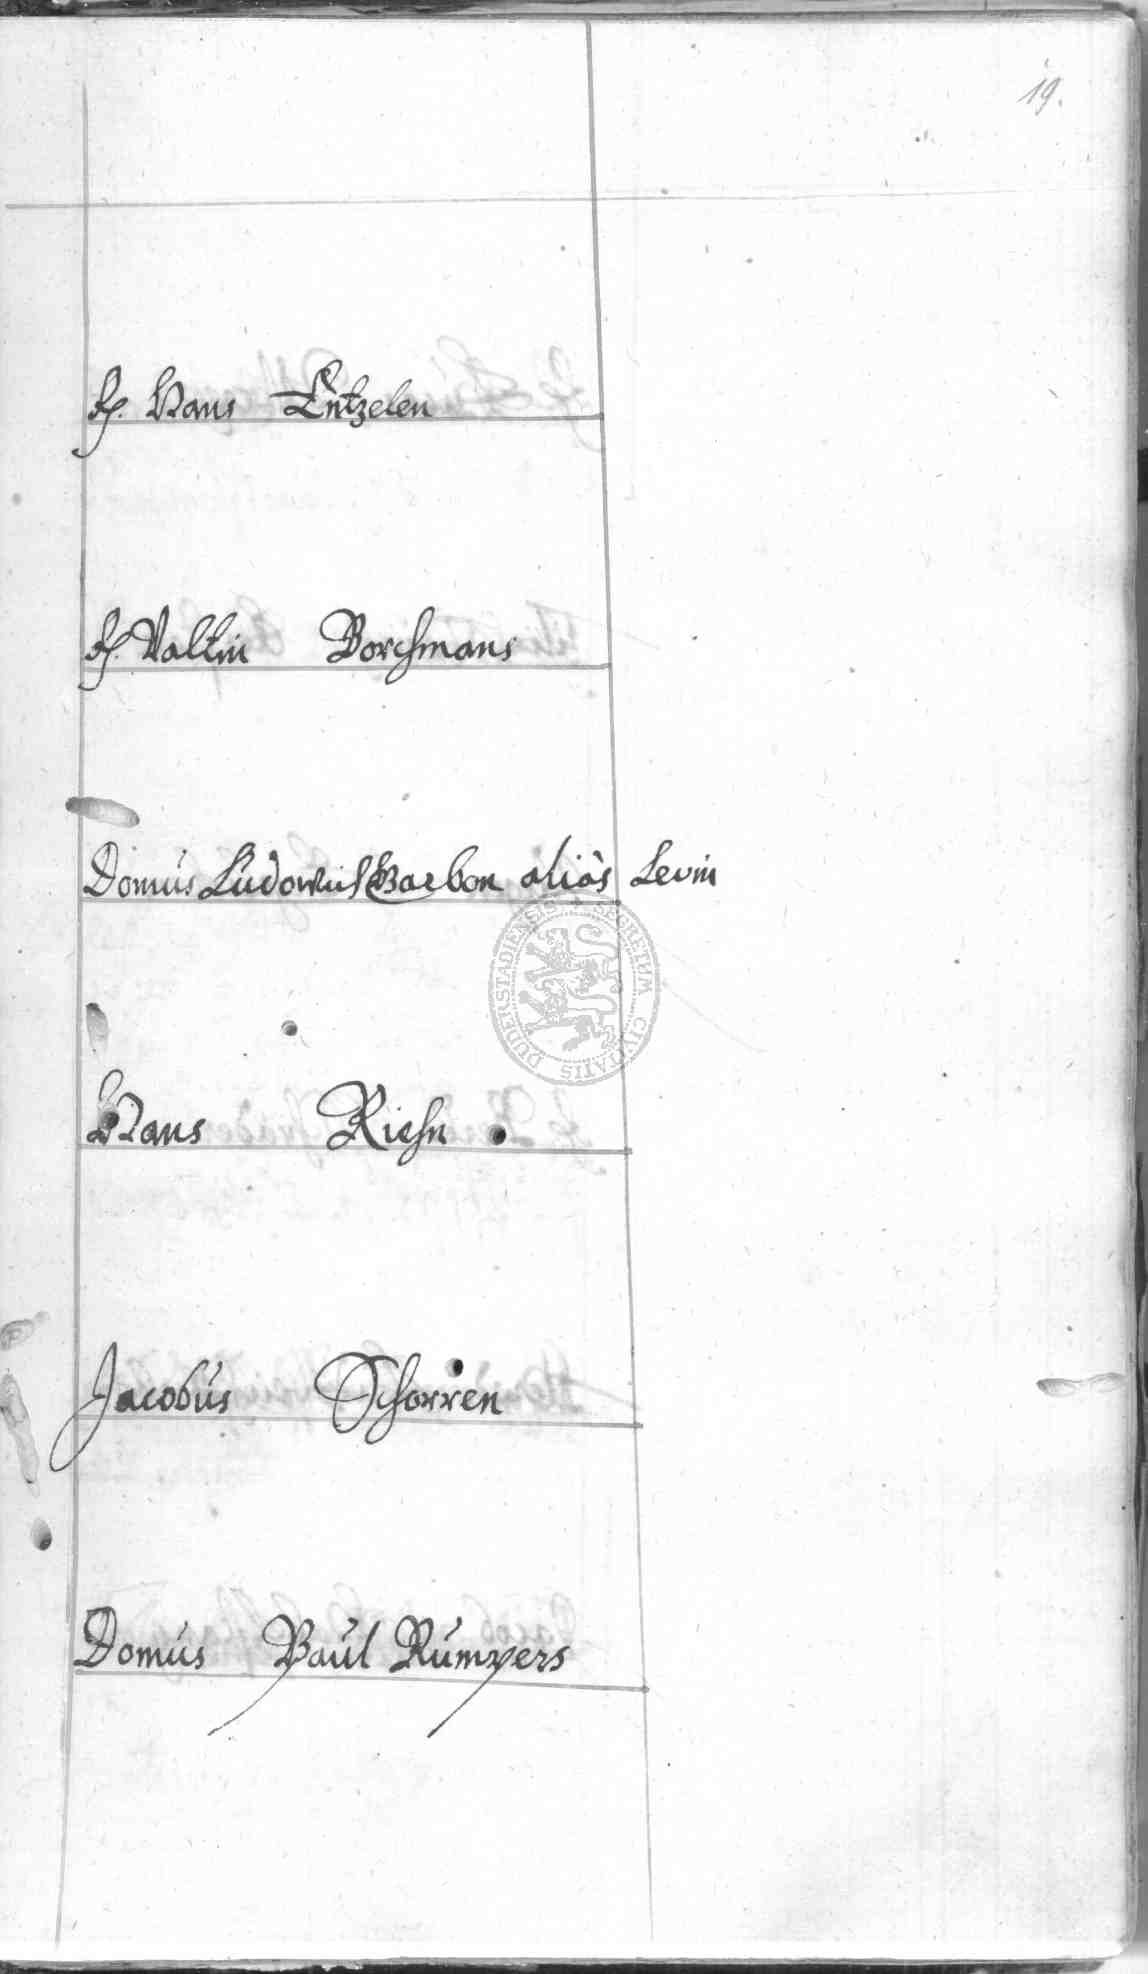 19.
H. Hans Entzelen
H. Valtin Borchmans
Domus Ludowici Barbon aliàs Levin
DUDERSTADIENSIS + SECRETUM CIVITATIS
Hans Riehn
Jacobus Schorren
Domus Paul Rumpers